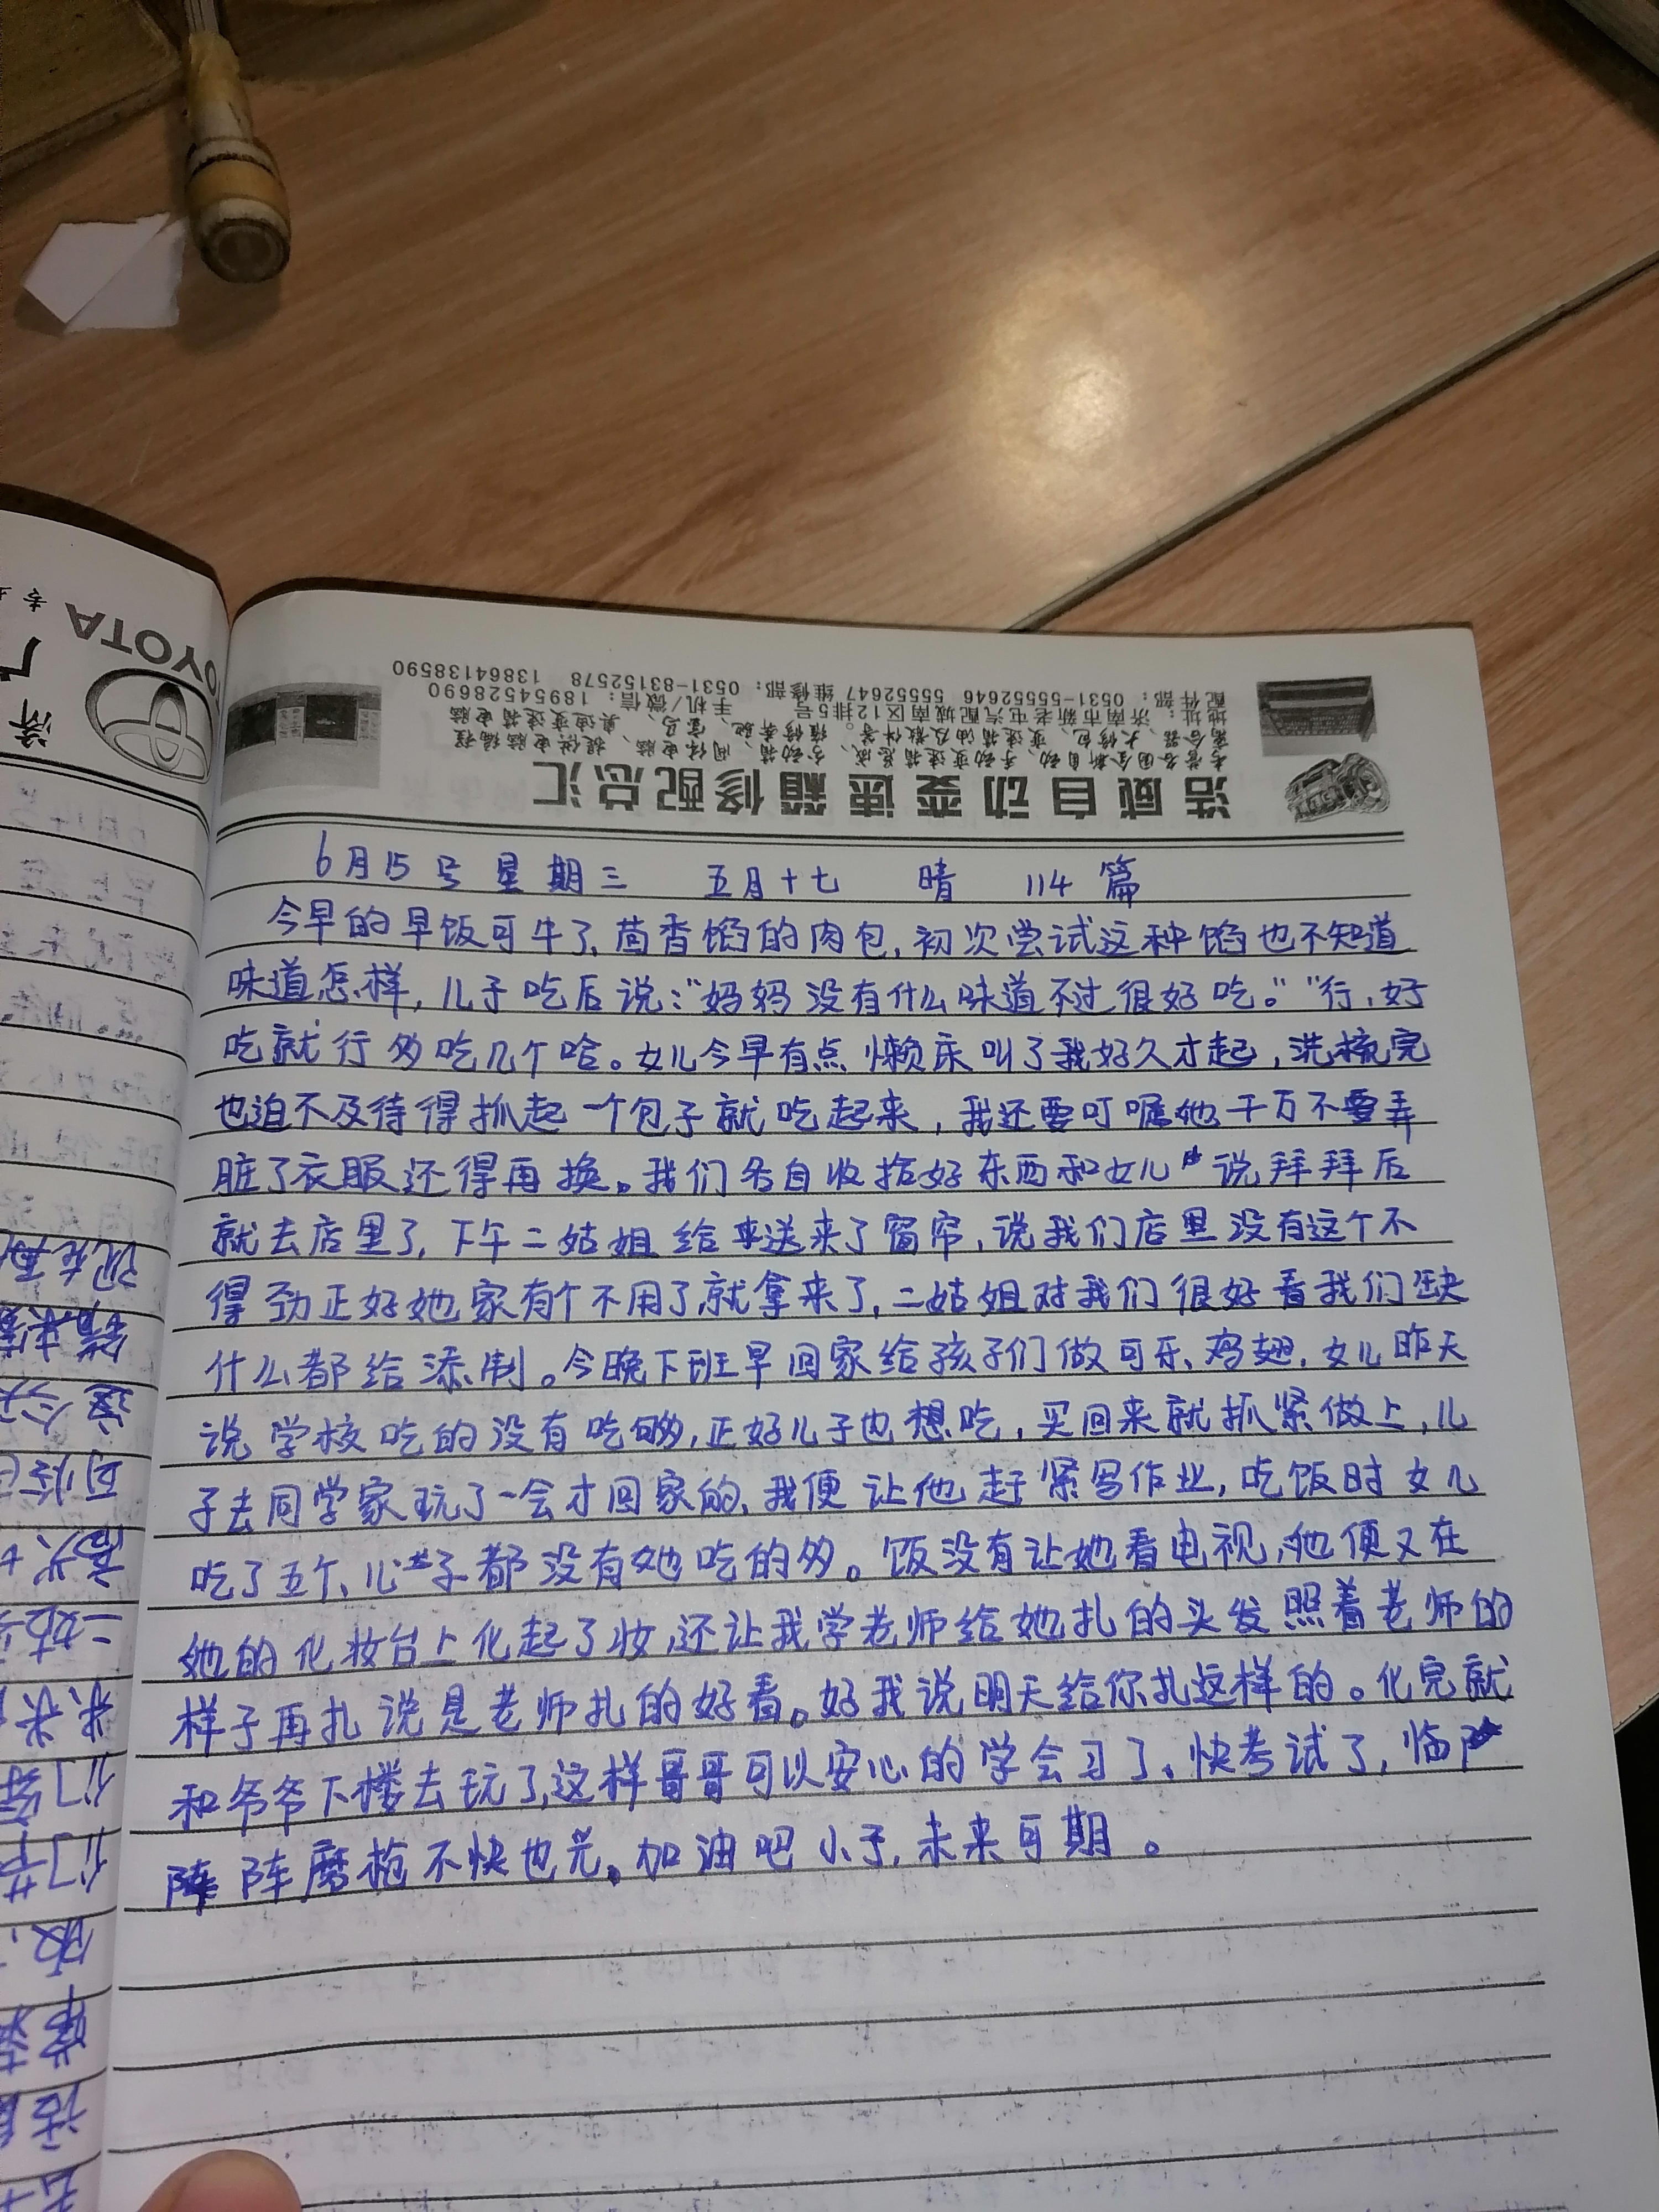 浩威自动变速箱修配总汇
地址：济南市新老屯汽配城南区12排5号 手机/微信：18954528690
配件部：0531-55552646 55552647 维修部：0531-83152578 13864138590
TOYOTA
6月15号 星期三 五月十七 晴 114篇
今早的早饭可牛了，茴香馅的肉包，初次尝试这种馅也不知道
味道怎样，儿子吃后说：“妈妈没有什么味道不过很好吃。”“行，好
吃就行多吃几个哈。女儿今早有点懒床叫了我好久才起，洗梳完
也迫不及待得抓起一个包子就吃起来，我还要叮嘱她千万不要弄
脏了衣服还得再换。我们各自收拾好东西和女儿说拜拜后
就去店里了，下午二姑姐给送来了窗帘，说我们店里没有这个不
得劲正好她家有个不用了就拿来了，二姑姐对我们很好看我们缺
什么都给添制。今晚下班早回家给孩子们做可乐、鸡翅，女儿昨天
说学校吃的没有吃够，正好儿子也想吃，买回来就抓紧做上，儿
子去同学家玩了一会才回家的，我便让他赶紧写作业，吃饭时女儿
吃了五个、儿子都没有她吃的多。饭没有让她看电视，她便又在
她的化妆台上化起了妆，还让我学老师给她扎的头发照着老师的
样子再扎说是老师扎的好看。好我说明天给你扎这样的。化完就
和爷爷下楼去玩了，这样哥哥可以安心的学会习了。快考试了，临
阵磨枪不快也光。加油吧小于，未来可期。